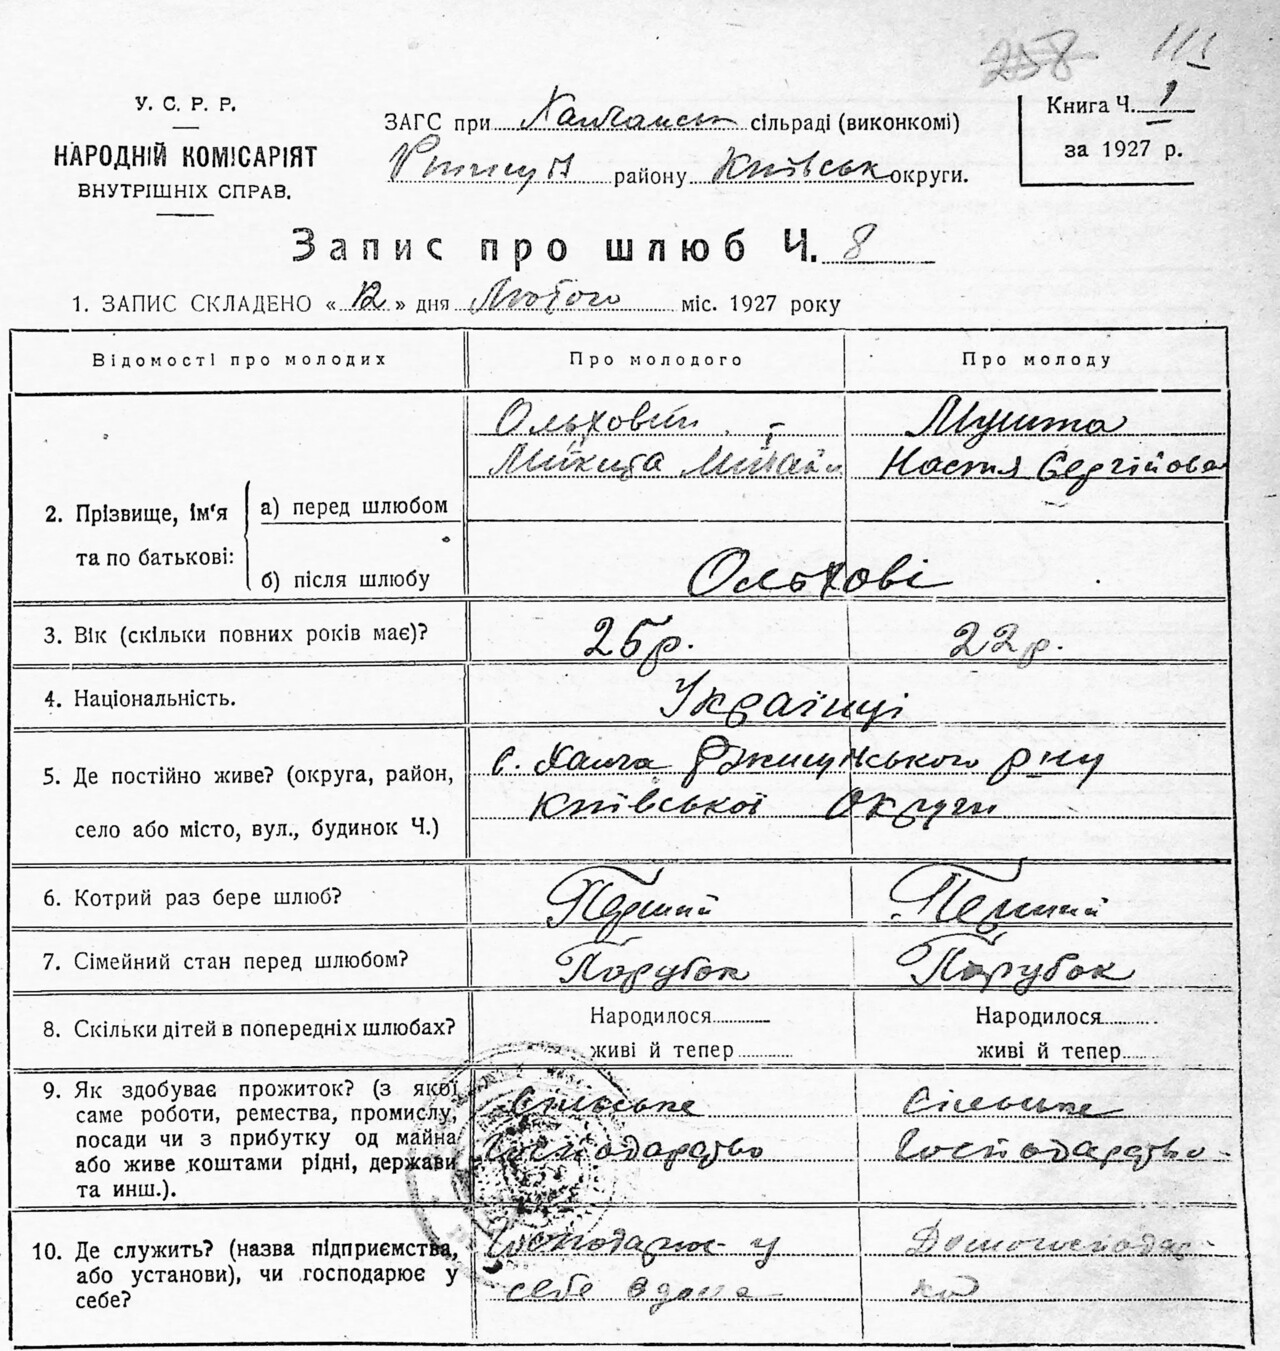 258 III
У. С. Р. Р.
НАРОДНІЙ КОМІСАРІЯТ
ВНУТРІШНІХ СПРАВ.
ЗАГС при Халчанськ сільраді (виконкомі)
району Київськ округи.
Книга Ч. 1
за 1927 р.
Запис про шлюб Ч. 8
1. ЗАПИС СКЛАДЕНО « 12 » дня Лютого міс. 1927 року
Відомості про молодих Про молодого Про молоду
Ольховий Мушта
Микита Настя Сергійова
2. Прізвище, ім'я та по батькові:
а) перед шлюбом
б) після шлюбу Ольхові
3. Вік (скільки повних років має)? 25р. 22р.
4. Національність. Українці
5. Де постійно живе? (округа, район, с. Халча Ржищівського р-ну
село або місто, вул., будинок Ч.) Київської Округи
6. Котрий раз бере шлюб? Перший Перший
7. Сімейний стан перед шлюбом? Парубок Парубок
8. Скільки дітей в попередніх шлюбах? Народилося Народилося
живі й тепер живі й тепер
9. Як здобуває прожиток? (з якої Сільське Сільське
саме роботи, ремества, промислу,
посади чи з прибутку од майна Господарство Господарство
або живе коштами рідні, держави
та инш.).
10. Де служить? (назва підприємства, Господарює у Домогосподар-
або установи), чи господарює у себе вдома кой
себе?